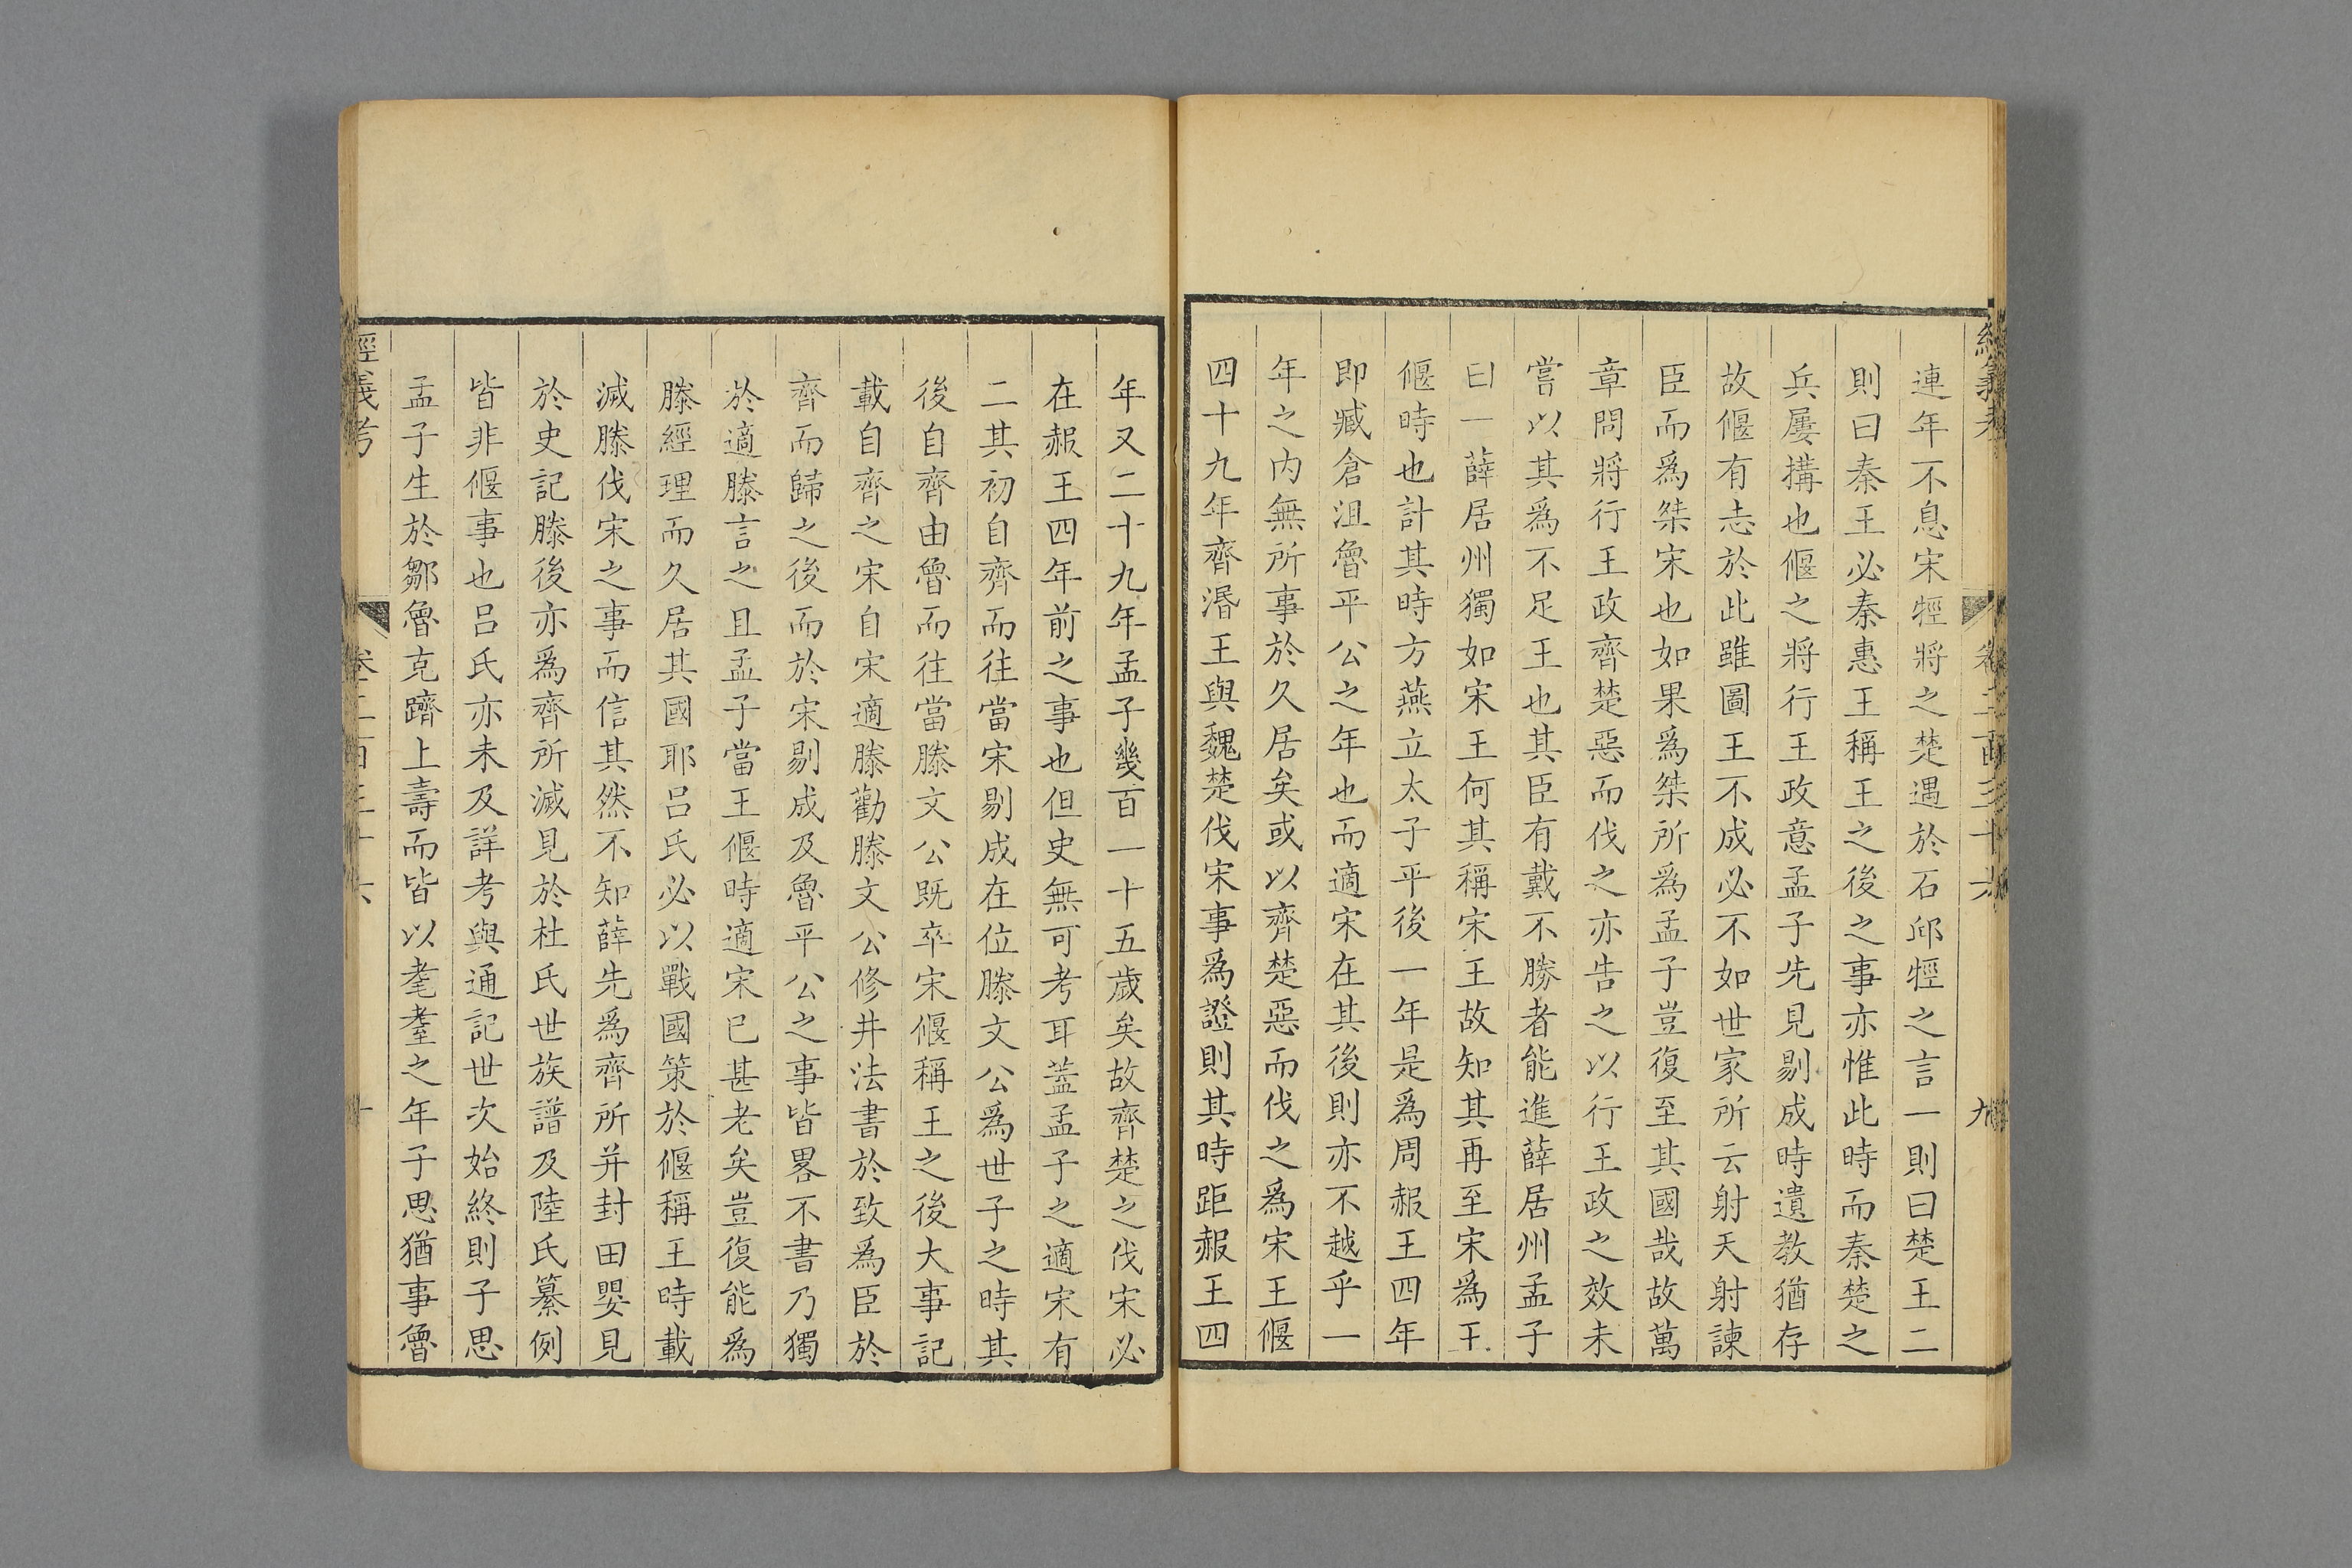 連年不息宋牼將之楚遇於石邱牼之言一則曰楚王二
則曰秦王必秦惠王稱王之後之事亦惟此時而秦楚之
兵屢搆也偃之將行王政意孟子先見剔成時遺教猶存
故偃有志於此雖圖王不成必不如世家所云射天射諫
臣而爲桀宋也如果爲桀所爲孟子豈復至其國哉故萬
章問將行王政齊楚惡而伐之亦告之以行王政之效未
嘗以其爲不足王也其臣有戴不勝者能進薛居州孟子
曰一薛居州獨如宋王何其稱宋王故知其再至宋爲王
偃時也計其時方燕立太子平後一年是爲周赧王四年
即臧倉沮魯平公之年也而適宋在其後則亦不越乎一
年之內無所事於久居矣或以齊楚惡而伐之爲宋王偃
四十九年齊湣王與魏楚伐宋事爲證則其時距赧王四
年又二十九年孟子幾百一十五歲矣故齊楚之伐宋必
在赧王四年前之事也但史無可考耳蓋孟子之適宋有
二其初自齊而往當宋剔成在位滕文公爲世子之時其
後自齊由魯而往當滕文公既卒宋偃稱王之後大事記
載自齊之宋自宋適滕勸滕文公修井法書於致爲臣於
齊而歸之後而於宋剔成及魯平公之事皆畧不書乃獨
於適滕言之且孟子當王偃時適宋已甚老矣豈復能爲
滕經理而久居其國耶呂氏必以戰國策於偃稱王時載
滅滕伐宋之事而信其然不知薛先爲齊所并封田嬰見
於史記滕後亦爲齊所滅見於杜氏世族譜及陸氏纂例
皆非偃事也呂氏亦未及詳考與通記世次始終則子思
孟子生於鄒魯克躋上壽而皆以耄耋之年子思猶事魯
經義考 卷二百三十六 十